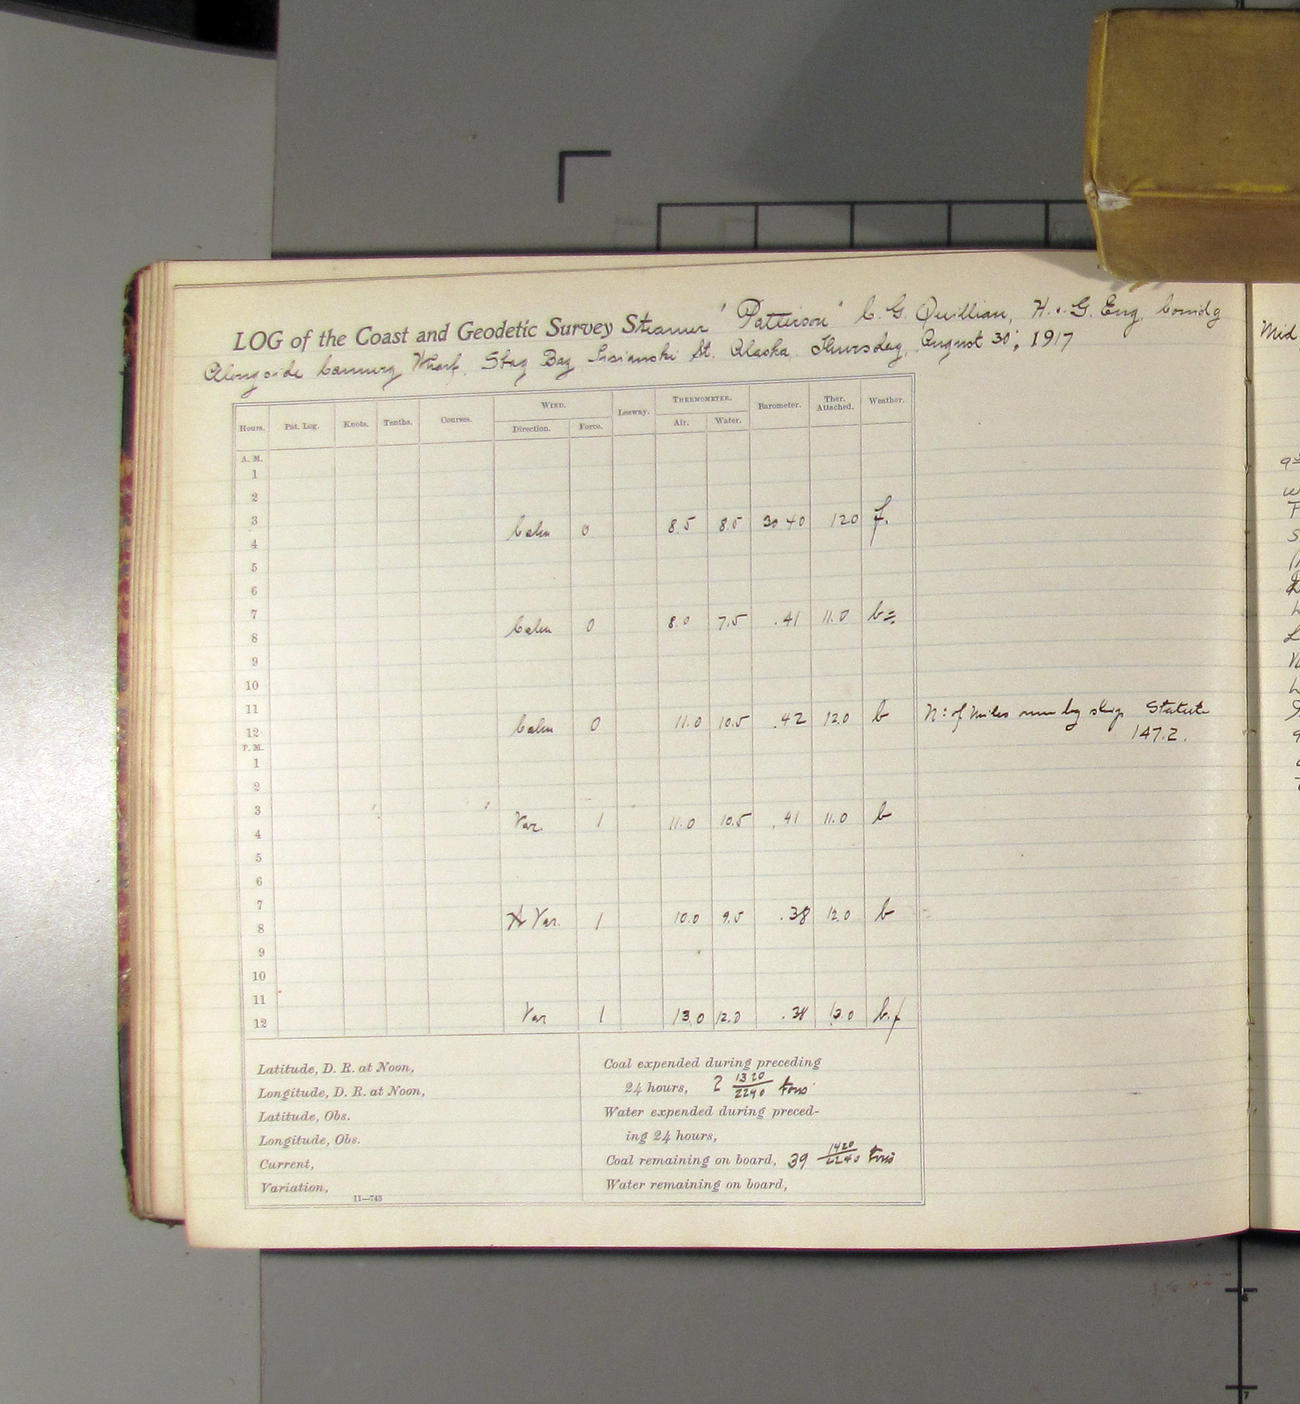 LOG of the Coast and Geodetic Survey Steamer "Patterson" C. G. Quillian, H. & G. Eng. Comdg
Alongside Cannery Wharf, Stag Bay, Lisianski St. Alaska. Thursday, August 30", 1917
Hours. Pat. Log. Knots. Tenths. Courses. WIND. Leeway. THERMOMETER. Barometer. Ther. Attached. Weather.
Direction. Force. Air. Water.
A. M.
1
2
3
4 Calm 0 8.5 8.5 30 40 12 0 f.
5
6
7
8 Calm 0 8.0 7.5 .41 11.0 b=.
9
10
11
12 Calm 0 11.0 10.5 .42 12.0 b No. of miles run by ship Statute
147.2.
P. M.
1
2
3
4 Var. 1 11.0 10.5 .41 11.0 b
5
6
7
8 Var. 1 10.0 9.5 .38 12.0 b
9
10
11
12 Var 1 13.0 12.0 .38 13.0 b.f
Latitude, D. R. at Noon,
Longitude, D. R. at Noon,
Latitude, Obs.
Longitude, Obs.
Current,
Variation,
11—743
Coal expended during preceding
24 hours, 2 1320/2240 tons
Water expended during preced-
ing 24 hours,
Coal remaining on board, 39 1420/2240 tons
Water remaining on board,
Mid
6
7